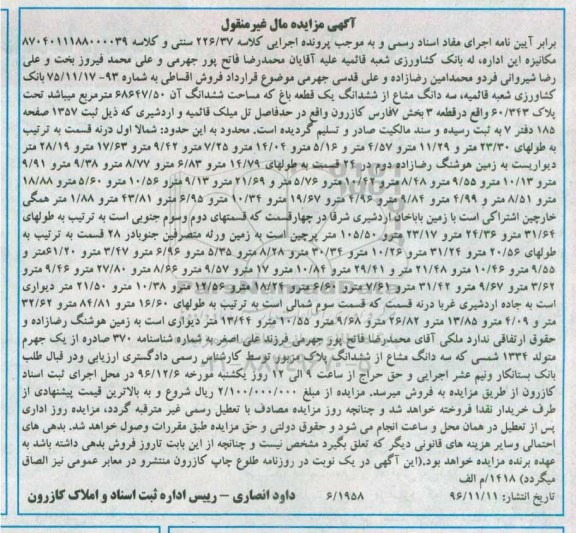 آگهی مزایده مال غیرمنقول
برابر آیین نامه اجرای مفاد اسناد رسمی و به موجب پرونده اجرایی کلاسه ۲۲۶/۳۷ سنتی و کلاسه ۸۷۰۴۰۱۱۱۸۸۰۰۰۰۳۹
مکانیزه این اداره، له بانک کشاورزی شعبه قائمیه علیه آقایان محمدرضا فاتح پور جهرمی و علی محمد فیروز بخت و علی
رضا شیروانی فردو محمدامین رضازاده و علی قدسی جهرمی موضوع قرارداد فروش اقساطی به شماره ۹۳- ۷۵/۱۱/۱۷ بانک
کشاورزی شعبه قائمیه، سه دانگ مشاع از ششدانگ یک قطعه باغ که مساحت ششدانگ آن ۶۸۶۴۷/۵۰ مترمربع میباشد تحت
پلاک ۶۰/۳۴۳ واقع درقطعه ۳ بخش ۷فارس کازرون واقع در حدفاصل تل میلک قائمیه و اردشیری که ذیل ثبت ۱۳۵۷ صفحه
۱۸۵ دفتر ۷ به ثبت رسیده و سند مالکیت صادر و تسلیم گردیده است. محدود به این حدود: شمالا اول درنه قسمت به ترتیب
به طولهای ۲۳/۳۰ متر و ۱۱/۲۹ مترو ۴/۵۷ متر و ۵/۱۶ مترو ۱۴/۰۴ مترو ۷/۲۵ مترو ۹/۴۲ مترو ۱۷/۶۳ مترو ۲۸/۱۹ متر
دیواریست به زمین هوشنگ رضازاده دوم در ۲۴ قسمت به طولهای ۱۴/۷۹ مترو ۶/۸۳ مترو ۸/۷۷ مترو ۹/۳۸ مترو ۹/۹۱
مترو ۱۰/۱۳ مترو ۹/۵۵ مترو ۸/۴۸ مترو ۸/۲۴ مترو ۵/۷۶ مترو ۲۱/۶۹ مترو ۹/۱۳ مترو ۱۰/۵۶ مترو ۵/۶۰ مترو ۱۸/۸۸
مترو ۸/۵۱ متر و ۴/۹۹ مترو ۹/۸۴ مترو ۴/۹۶ مترو ۱۹/۶۷ مترو ۱۰/۳۴ مترو ۶/۹۵ مترو ۴۳/۸۱ مترو ۱/۸۸ متر همگی
خارچین اشتراکی است با زمین باباخان اردشیری شرقا در چهارقسمت که قسمتهای دوم وسوم جنوبی است به ترتیب به طولهای
۳۱/۶۴ مترو ۲۴/۳۶ مترو ۲۳/۱۷ مترو ۱۰۵/۵۰ متر پرچین است به زمین ورثه متصرفین جنوبادر ۲۸ قسمت به ترتیب به
طولهای ۲۰/۵۶ مترو ۳۱/۲۴ مترو ۱۰/۲۶ مترو ۳۰/۳۴ مترو ۸/۲۸ مترو ۵/۳۵ مترو ۶/۹۶ مترو ۳/۴۷ مترو ۶۱/۲۰متر و
۹/۵۵ مترو ۱۰/۴۶ مترو ۲۱/۴۸ متر و ۲۹/۴۱ مترو ۱۰/۸۴ مترو ۱۷ مترو ۹/۵۷ مترو ۸/۶۶ مترو ۲۷/۸۰ مترو ۹/۴۶ مترو
۳/۶۲ مترو ۹/۶۷ مترو ۳۱/۴۲ مترو ۷/۶۱ مترو ۶/۶۰ مترو ۱۸/۲۴ مترو ۷/۵۶ مترو ۱۰/۳۸ مترو ۲۱/۵۰ متر دیواری
است به جاده اردشیری غربا درنه قسمت که قسمت سوم شمالی است به ترتیب به طولهای ۱۶/۶۰ مترو ۸۴/۸۱ مترو ۳۲/۶۲
متر و ۴/۰۹ مترو ۱۳/۸۵ مترو ۲۶/۸۲ مترو ۹/۶۸ مترو ۱۰/۵۵ مترو ۱۳/۴۴ متر دیواری است به زمین هوشنگ رضازاده و
حقوق ارتفاقی ندارد ملکی آقای محمدرضا فاتح پور جهرمی فرزند علی اصغر به شماره شناسنامه ۳۷۰ صادره از یک جهرم
متولد ۱۳۳۴ شمسی که سه دانگ مشاع از ششدانگ پلاک مزبور توسط کارشناس رسمی دادگستری ارزیابی ودر قبال طلب
بانک بستانکار ونیم عشر اجرایی و حق حراج از ساعت ۹ الی ۱۲ روز یکشنبه مورخه ۹۶/۱۲/۶ در محل اجرای ثبت اسناد
کازرون از طریق مزایده به فروش میرسد. مزایده از مبلغ ۲/۱۰۰/۰۰۰/۰۰۰ ریال شروع و به بالاترین قیمت پیشنهادی از
طرف خریدار نقدا فروخته خواهد شد و چنانچه روز مزایده مصادف با تعطیل رسمی غیر مترقبه گردد، مزایده روز اداری
پس از تعطیل در همان محل و ساعت انجام می شود و حقوق دولتی و حق مزایده طبق مقررات وصول خواهد شد. بدهی های
احتمالی وسایر هزینه های قانونی دیگر که تعلق بگیرد مشخص نیست و چنانچه از این بابت تاروز فروش بدهی داشته باشد به
عهده برنده مزایده خواهد بود.(این آگهی در یک نوبت در روزنامه طلوع چاپ کازرون منتشرو در معابر عمومی نیز الصاق
میگردد) ۱۴۱۸/م الف
تاریخ انتشار: ۹۶/۱۱/۱۱ ۶/۱۹۵۸ داود انصاری – رییس اداره ثبت اسناد و املاک کازرون